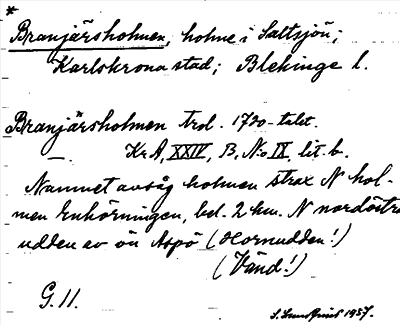 *
Branjärsholmen, holme i Saltsjön;
Karlskrona stad; Blekinge l.
Branjärsholmen trol. 1730-talet.
— Kr.A, XXIV, B, No IX, lit. b.
Namnet avsåg holmen strax N hol-
men Enhörningen, bel. 2 km. N nordöstra
udden av ön Aspö (Hornudden!)
(Vänd!)
G. 11.
1937.